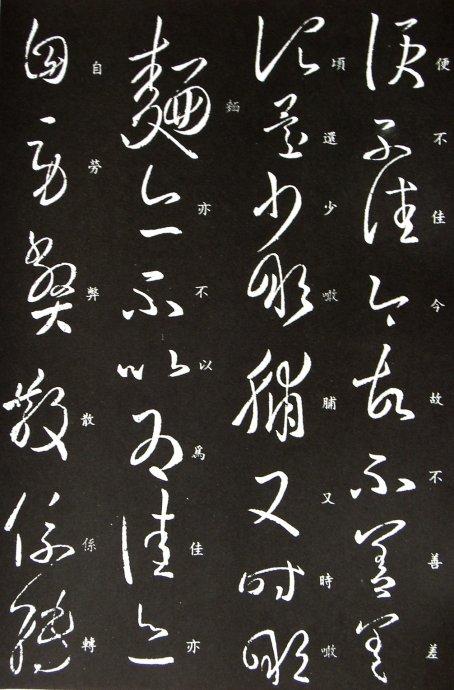 便不佳今故不善差
頃還少噉脯又時噉
麵亦不以爲佳亦
自勞弊散係轉